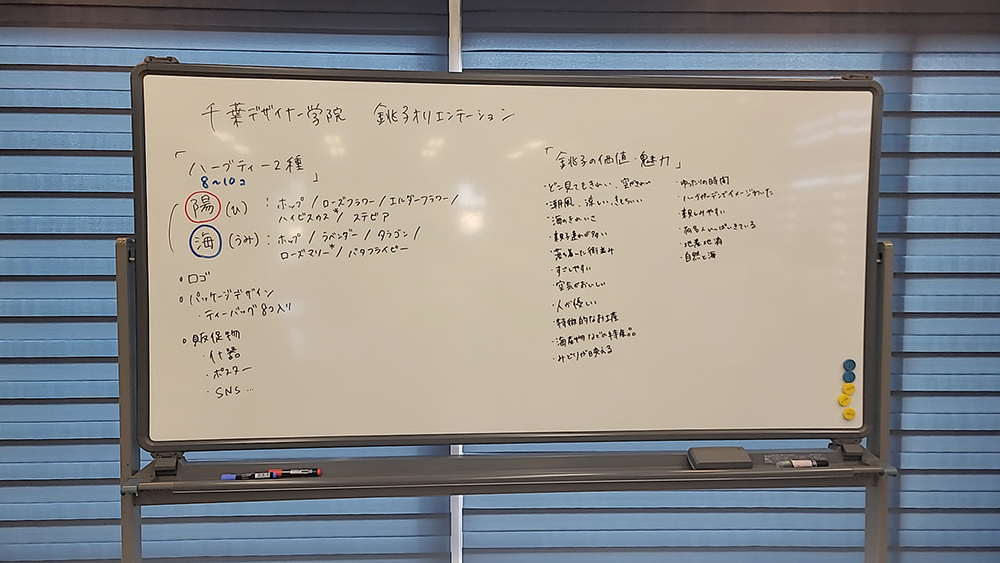 千葉デザイナー学院 銚子オリエンテーション
「ハーブティー2種」
8~10コ
陽(ひ):ホップ/ローズフラワー/エルダーフラワー/
ハイビスカス*/ステビア
海(うみ):ホップ/ラベンダー/タラゴン/
ローズマリー*/バタフライピー
・ロゴ
・パッケージデザイン
・ティーバッグ8コ入り
・販促物
・什器
・ポスター
・SNS...
「銚子の価値・魅力」
・どこ見てもきれい、空がきれい
・潮風、涼しい、きもちいい
・海のきれいさ
・親子連れが多い
・落ち着いた街並み
・すごしやすい
・空気がおいしい
・人が優しい
・特徴的なお土産
・海産物などの特産品
・みどりが映える
・ゆったりの時間
・ハーブガーデンでイメージわいた
・親しみやすい
・有名人いっぱいきている
・地産地消
・自然と海